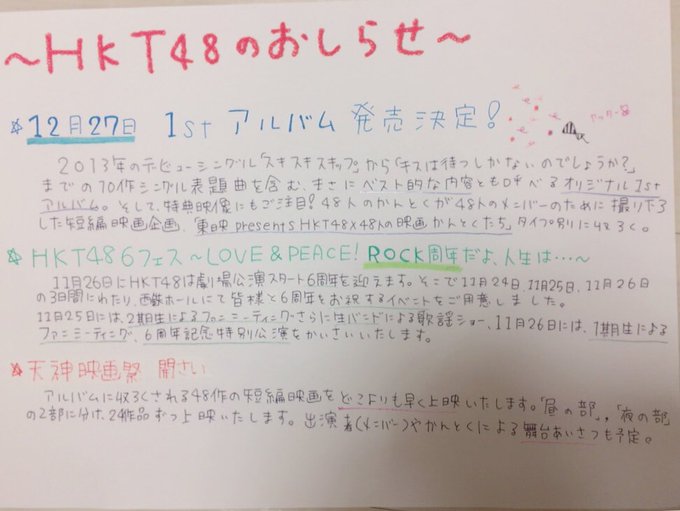 ～HKT48のおしらせ～
☆12月27日 1st アルバム 発売決定!
2013年のデビューシングル「スキスキスキップ」から「キスは待つしかないのでしょうか?」
までの10作シングル表題曲を含む、まさにベスト的な内容とも呼べるオリジナル1st
アルバム。そして、特典映像にもご注目!48人のかんとくが48人のメンバーのために撮り下ろ
した短編映画企画、東映presents HKT48×48人の映画かんとくたち」タイプ別に収ろく。
☆HKT48 6フェス～LOVE&PEACE! ROCK周年だよ、人生は…～
11月26日にHKT48は劇場公演スタート6周年を迎えます。そこで11月24日、11月25日、11月26日
の3日間にわたり、西鉄ホールにて皆様と6周年をお祝するイベントをご用意しました。
11月25日には、2期生によるファンミーティングさらに生バンドによる歌謡ショー、11月26日には、1期生による
ファンミーティング、6周年記念特別公演をかいさいいたします。
☆天神映画祭 開さい
アルバムに収ろくされる48作の短編映画をどこよりも早く上映いたします。「昼の部」,「夜の部
の2部に分け、24作品ずつ上映いたします。出演者(メンバー)やかんとくによる舞台あいさつも予定。